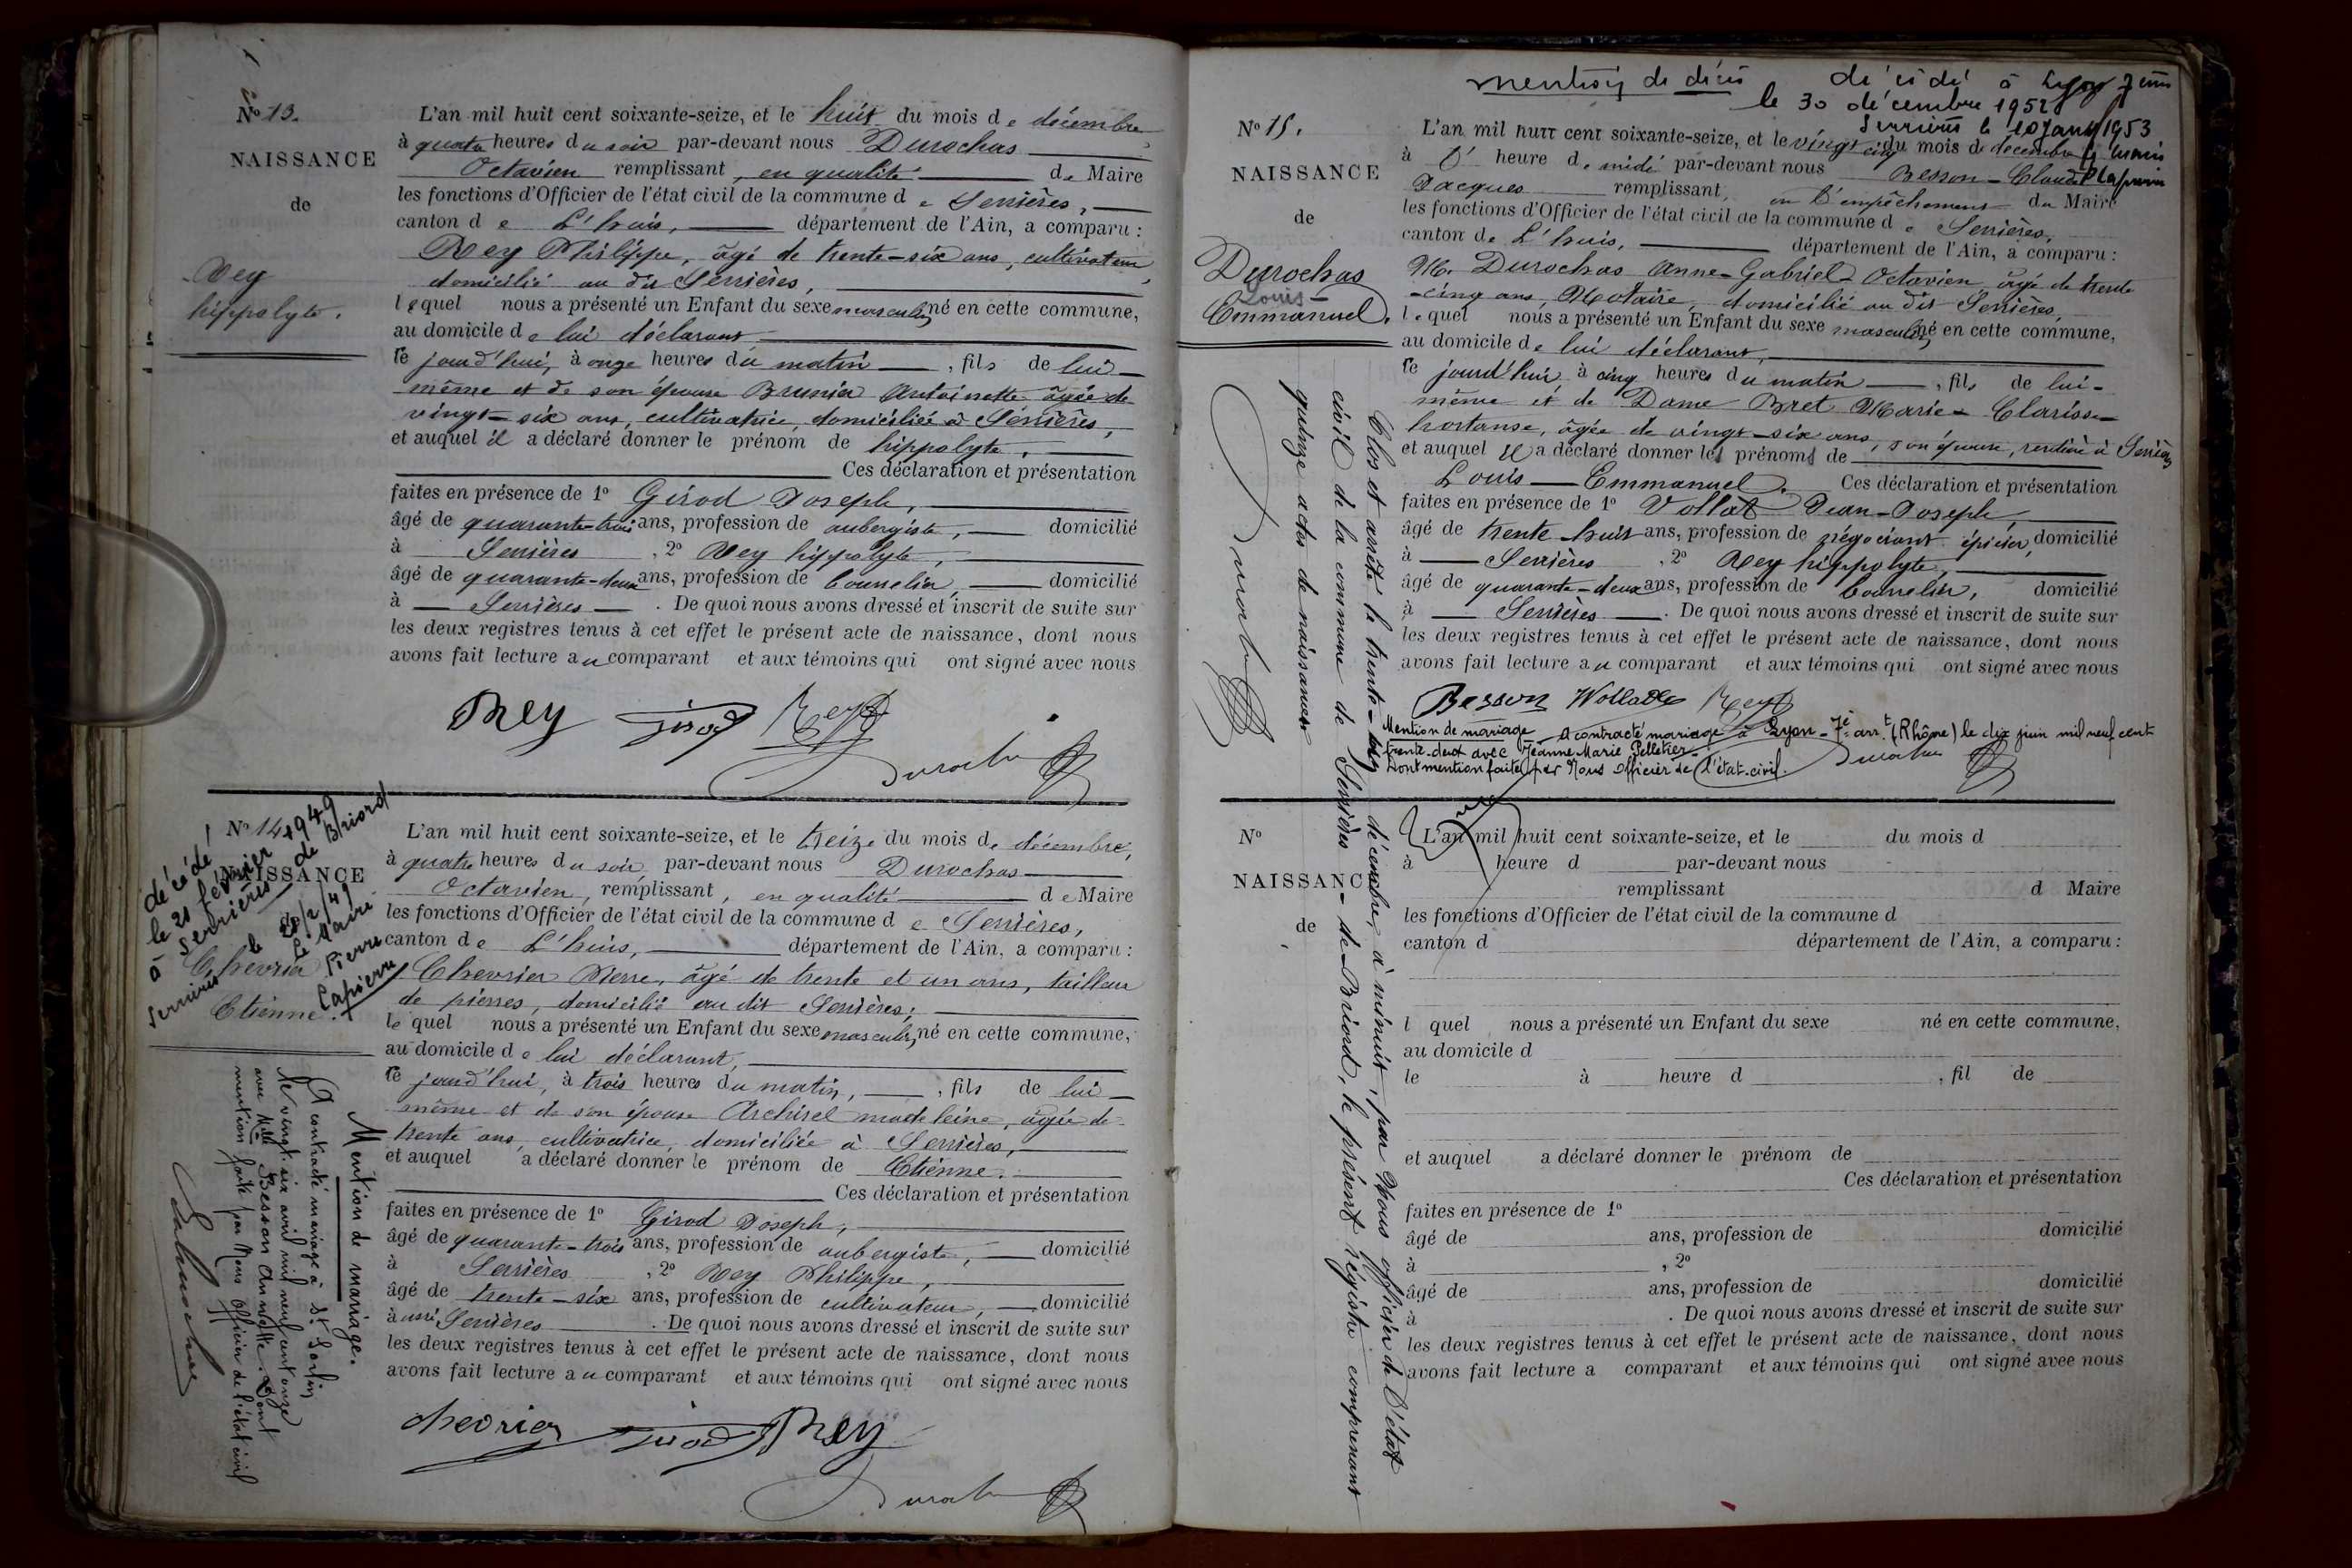 N° 13.
NAISSANCE
de
Rey
hippolyte.
L'an mil huit cent soixante-seize, et le huit du mois de décembre
à quatre heures du soir par-devant nous Durochas
Octavien remplissant, en qualité de Maire
les fonctions d'Officier de l'état civil de la commune de Serrières,
canton de L'huis, département de l'Ain, a comparu :
Rey Philippe, âgé de trente-six ans, cultivateur
domicilié au dit Serrières,
lequel nous a présenté un Enfant du sexe masculin, né en cette commune,
au domicile de lui déclarant
ce jourd'hui, à onze heures du matin, fils de lui-
même et de son épouse Brunier Antoinette âgée de
vingt-six ans, cultivatrice, domiciliée à Serrières,
et auquel il a déclaré donner le prénom de hippolyte.
Ces déclaration et présentation
faites en présence de 1° Girod Joseph,
âgé de quarante-trois ans, profession de aubergiste, domicilié
à Serrières, 2° Rey hippolyte,
âgé de quarante-deux ans, profession de bourrelier, domicilié
à Serrières. De quoi nous avons dressé et inscrit de suite sur
les deux registres tenus à cet effet le présent acte de naissance, dont nous
avons fait lecture au comparant et aux témoins qui ont signé avec nous
Rey Girod Rey
Durochas
N° 14
NAISSANCE
décédé
le 21 février 1949
à Serrières de Briord
Serrières le 22/2/49
le Maire
Pierre
Chevrier
Etienne.
L'an mil huit cent soixante-seize, et le treize du mois de décembre,
à quatre heures du soir par-devant nous Durochas
Octavien, remplissant, en qualité de Maire
les fonctions d'Officier de l'état civil de la commune de Serrières,
canton de L'huis, département de l'Ain, a comparu :
Chevrier Pierre, âgé de trente et un ans, tailleur
de pierres, domicilié au dit Serrières,
lequel nous a présenté un Enfant du sexe masculin, né en cette commune,
au domicile de lui déclarant,
ce jourd'hui, à trois heures du matin, fils de lui-
même et de son épouse Archirel madeleine, âgée de
trente ans, cultivatrice, domiciliée à Serrières,
et auquel a déclaré donner le prénom de Etienne.
Ces déclaration et présentation
faites en présence de 1° Girod Joseph,
âgé de quarante-trois ans, profession de aubergiste, domicilié
à Serrières, 2° Rey Philippe,
âgé de trente-six ans, profession de cultivateur, domicilié
à Serrières. De quoi nous avons dressé et inscrit de suite sur
les deux registres tenus à cet effet le présent acte de naissance, dont nous
avons fait lecture au comparant et aux témoins qui ont signé avec nous
chevrier Girod Rey
Durochas
Mention de mariage.
A contracté mariage à St Sorlin
le vingt-six avril mil neuf cent onze
avec Melle Besson Annette. Dont
mention faite par Nous Officier de l'état civil
mention de décès décédé à Lyon 7ème
le 30 décembre 1952
Serrières le 10 Janv 1953
le maire
N° 15.
NAISSANCE
de
Durochas
Louis-
Emmanuel.
L'an mil huit cent soixante-seize, et le vingt cinq du mois de décembre
à heure de midi par-devant nous Besson-Claude
Jacques remplissant, en l'empêchement du Maire
les fonctions d'Officier de l'état civil de la commune de Serrières,
canton de L'huis, département de l'Ain, a comparu :
M. Durochas Anne-Gabriel-Octavien âgé de trente
-cinq ans, Notaire, domicilié au dit Serrières,
lequel nous a présenté un Enfant du sexe masculin, né en cette commune,
au domicile de lui déclarant,
ce jourd'hui à cinq heures du matin, fils de lui-
même et de Dame Bret Marie-Clarisse-
hortanse, âgée de vingt-six ans, son épouse, rentière à Serrières
et auquel il a déclaré donner les prénoms de
Louis-Emmanuel. Ces déclaration et présentation
faites en présence de 1° Vollat Jean-Joseph
âgé de trente-huit ans, profession de négociant épicier, domicilié
à Serrières, 2° Rey hippolyte,
âgé de quarante-deux ans, profession de bourrelier, domicilié
à Serrières. De quoi nous avons dressé et inscrit de suite sur
les deux registres tenus à cet effet le présent acte de naissance, dont nous
avons fait lecture au comparant et aux témoins qui ont signé avec nous
Besson Rey
Mention de mariage - A contracté mariage à Lyon - 7è arr.t (Rhône) le dix juin mil neuf cent
trente-deux avec Jeanne Marie Pelletier -
Dont mention faite par Nous Officier de l'état-civil.
Durochas
Clos et arrêté le trente-un décembre, à minuit, par Nous officier de l'état
civil de la commune de Serrières-de-Briord, le présent régistre comprenant
quinze actes de naissances
Durochas
N°
NAISSANCE
de
L'an mil huit cent soixante-seize, et le du mois d
à heure d par-devant nous
remplissant d Maire
les fonctions d'Officier de l'état civil de la commune d
canton d département de l'Ain, a comparu :
l quel nous a présenté un Enfant du sexe né en cette commune,
au domicile d
le à heure d , fil de
et auquel a déclaré donner le prénom de
Ces déclaration et présentation
faites en présence de 1°
âgé de ans, profession de domicilié
à , 2°
âgé de ans, profession de domicilié
à . De quoi nous avons dressé et inscrit de suite sur
les deux registres tenus à cet effet le présent acte de naissance, dont nous
avons fait lecture a comparant et aux témoins qui ont signé avec nous